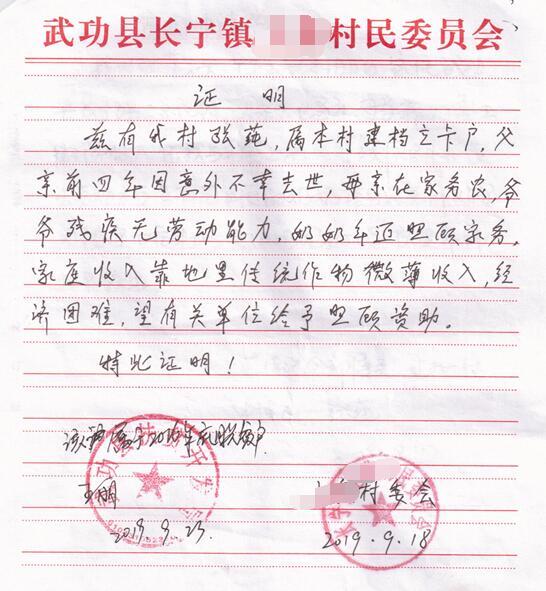 武功县长宁镇 村民委员会
证 明
兹有我村张莼，属本村建档立卡户，父
亲前四年因意外不幸去世，母亲在家务农，爷
爷残疾无劳动能力，奶奶年迈照顾家务。
家庭收入靠地里传统作物微薄收入，经
济困难，望有关单位给予照顾资助。
特此证明！
年底脱贫户
王鹏
2019.9.23
村委会
2019.9.18